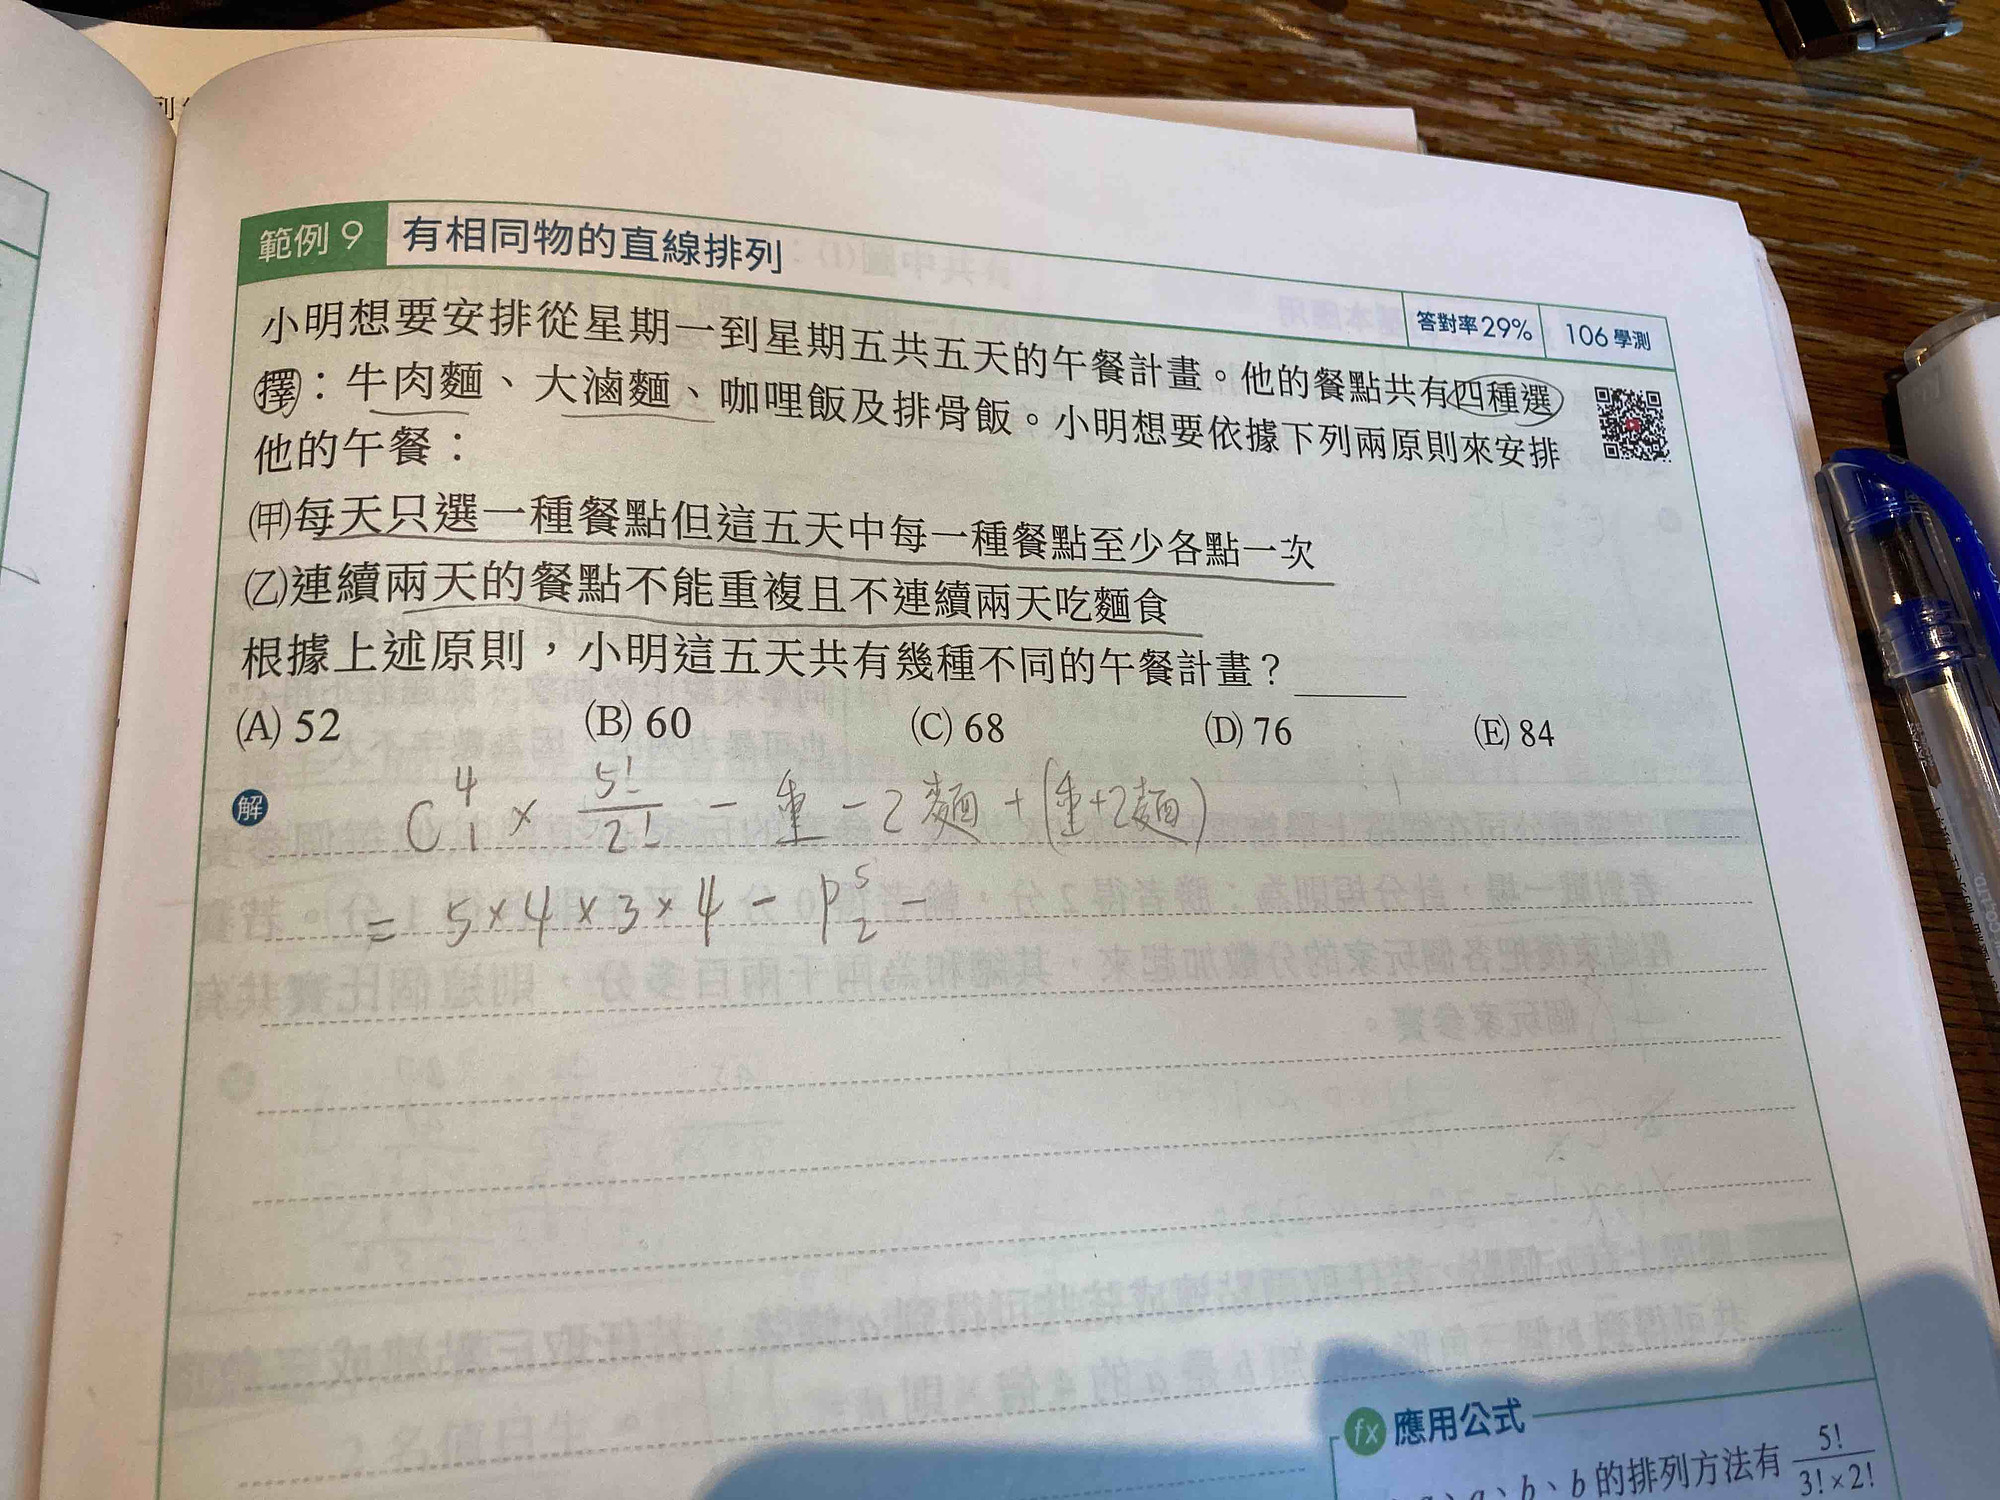 範例 9 有相同物的直線排列
答對率29% 106 學測
小明想要安排從星期一到星期五共五天的午餐計畫。他的餐點共有四種選
擇：牛肉麵、大滷麵、咖哩飯及排骨飯。小明想要依據下列兩原則來安排
他的午餐：
㈙每天只選一種餐點但這五天中每一種餐點至少各點一次
㈚連續兩天的餐點不能重複且不連續兩天吃麵食
根據上述原則，小明這五天共有幾種不同的午餐計畫？
(A) 52 (B) 60 (C) 68 (D) 76 (E) 84
解 C 4 1 × 5!/2! - 重 - 2麵 + (重+2麵)
= 5×4×3×4 - P 5 2 -
fx 應用公式
a、b、b 的排列方法有 5!/3!×2!